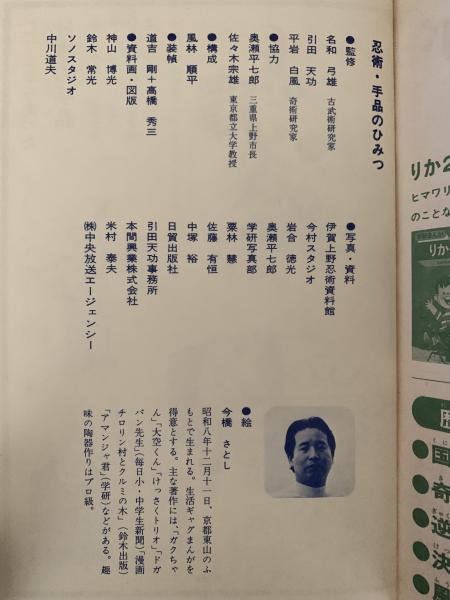 忍術・手品のひみつ
●監修
名和 弓雄 古武術研究家
引田 天功
平岩 白風 奇術研究家
●協力
奥瀬平七郎 三重県上野市長
佐々木宗雄 東京都立大学教授
●構成
風林 順平
●装幀
道吉 剛+高橋 秀三
●資料画・図版
神山 博光
鈴木 常光
ソノスタジオ
中川道夫
●写真・資料
伊賀上野忍術資料館
今村スタジオ
岩合 徳光
奥瀬平七郎
学研写真部
栗林 慧
佐藤 有恒
中塚 裕
日貿出版社
引田天功事務所
本間興業株式会社
米村 泰夫
㈱中央放送エージェンシー
●絵
今橋 さとし
昭和八年十二月十一日、京都東山のふ
もとで生まれる。生活ギャグまんがを
得意とする。主な著作には、「ガクちゃ
ん」「大空くん」「けっさくトリオ」「ドガ
バン先生」(毎日小・中学生新聞)「漫画
チロリン村とクルミの木」(鈴木出版)
「アマンジャ君」(学研)などがある。趣
味の陶器作りはプロ級。
りか2
ヒマワリ
のことな
りか
●国
●奇
●逆
●決